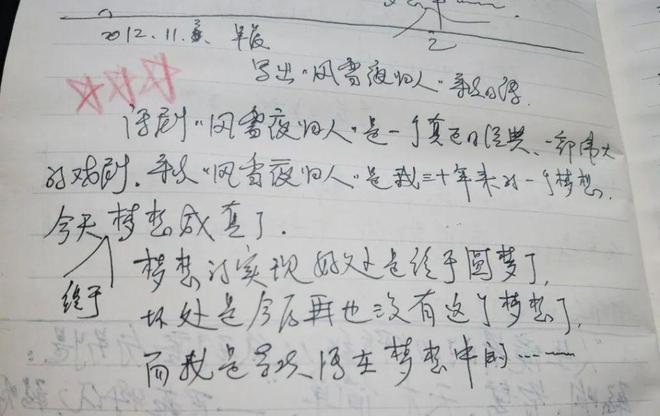 2012.11. 早晨
写出“风雪夜归人” 的
评剧“风雪夜归人”是一个真正的经典、一部伟大
的戏剧. “风雪夜归人”是我三十年来的一个梦想.
今天梦想成真了.
终于
梦想的实现好处是终于圆梦了,
坏处是今后再也没有这个梦想了,
而我是喜欢活在梦想中的……